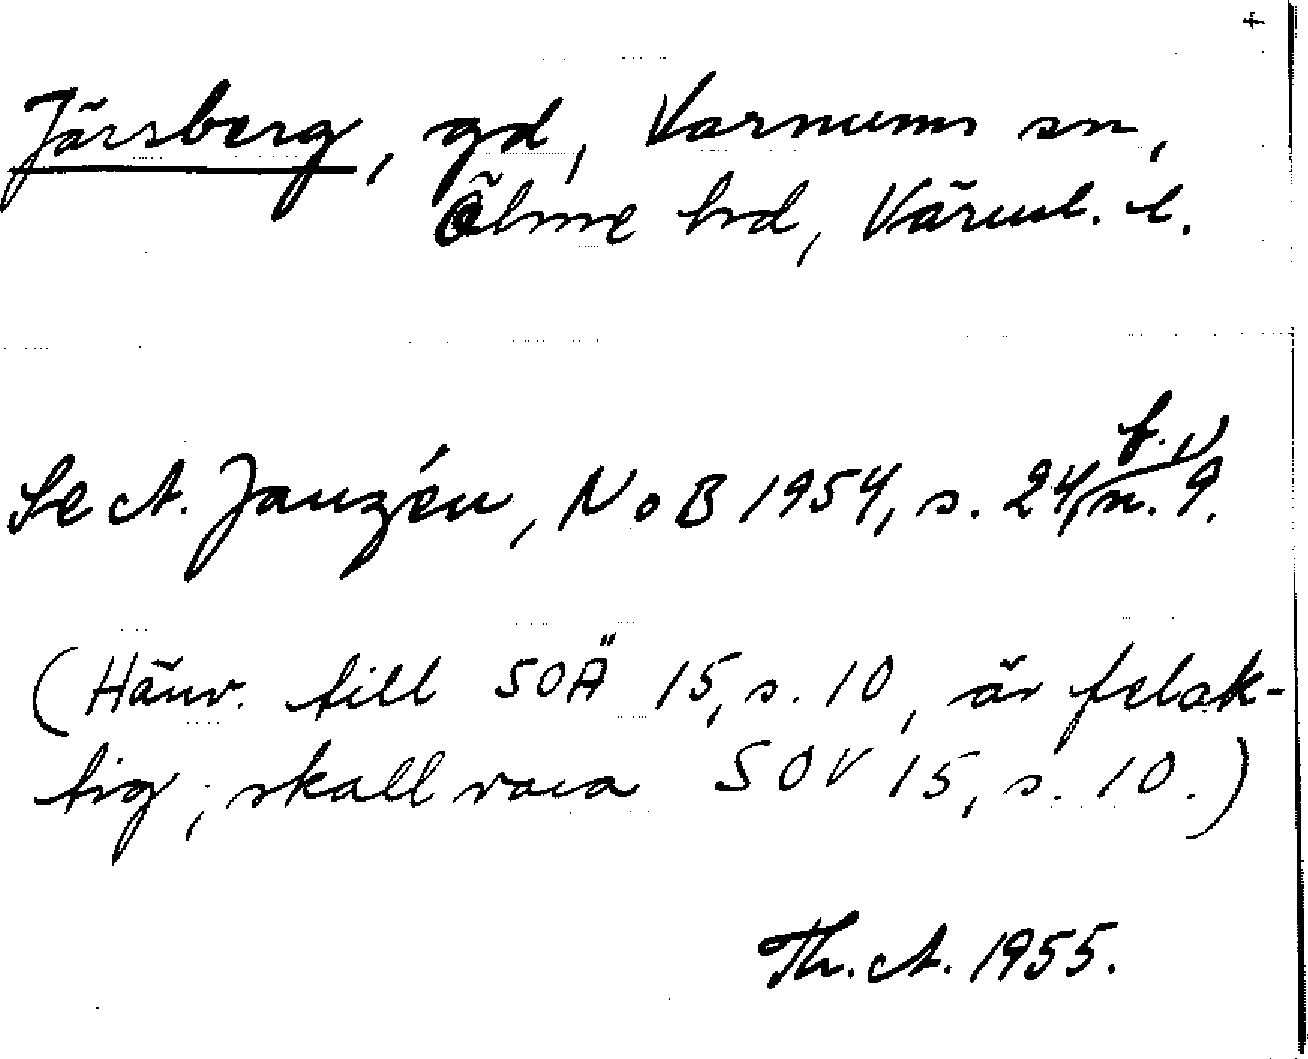 Järsberg, gd, Varnums sn,
Ölme hd, Värml. l.
Se A. Janzén, NoB 1954, s. 24, n. 9.
(Hänv. till SOÄ 15, s. 10, är felak-
tig; skall vara SOV 15, s. 10.)
Th. A. 1955.